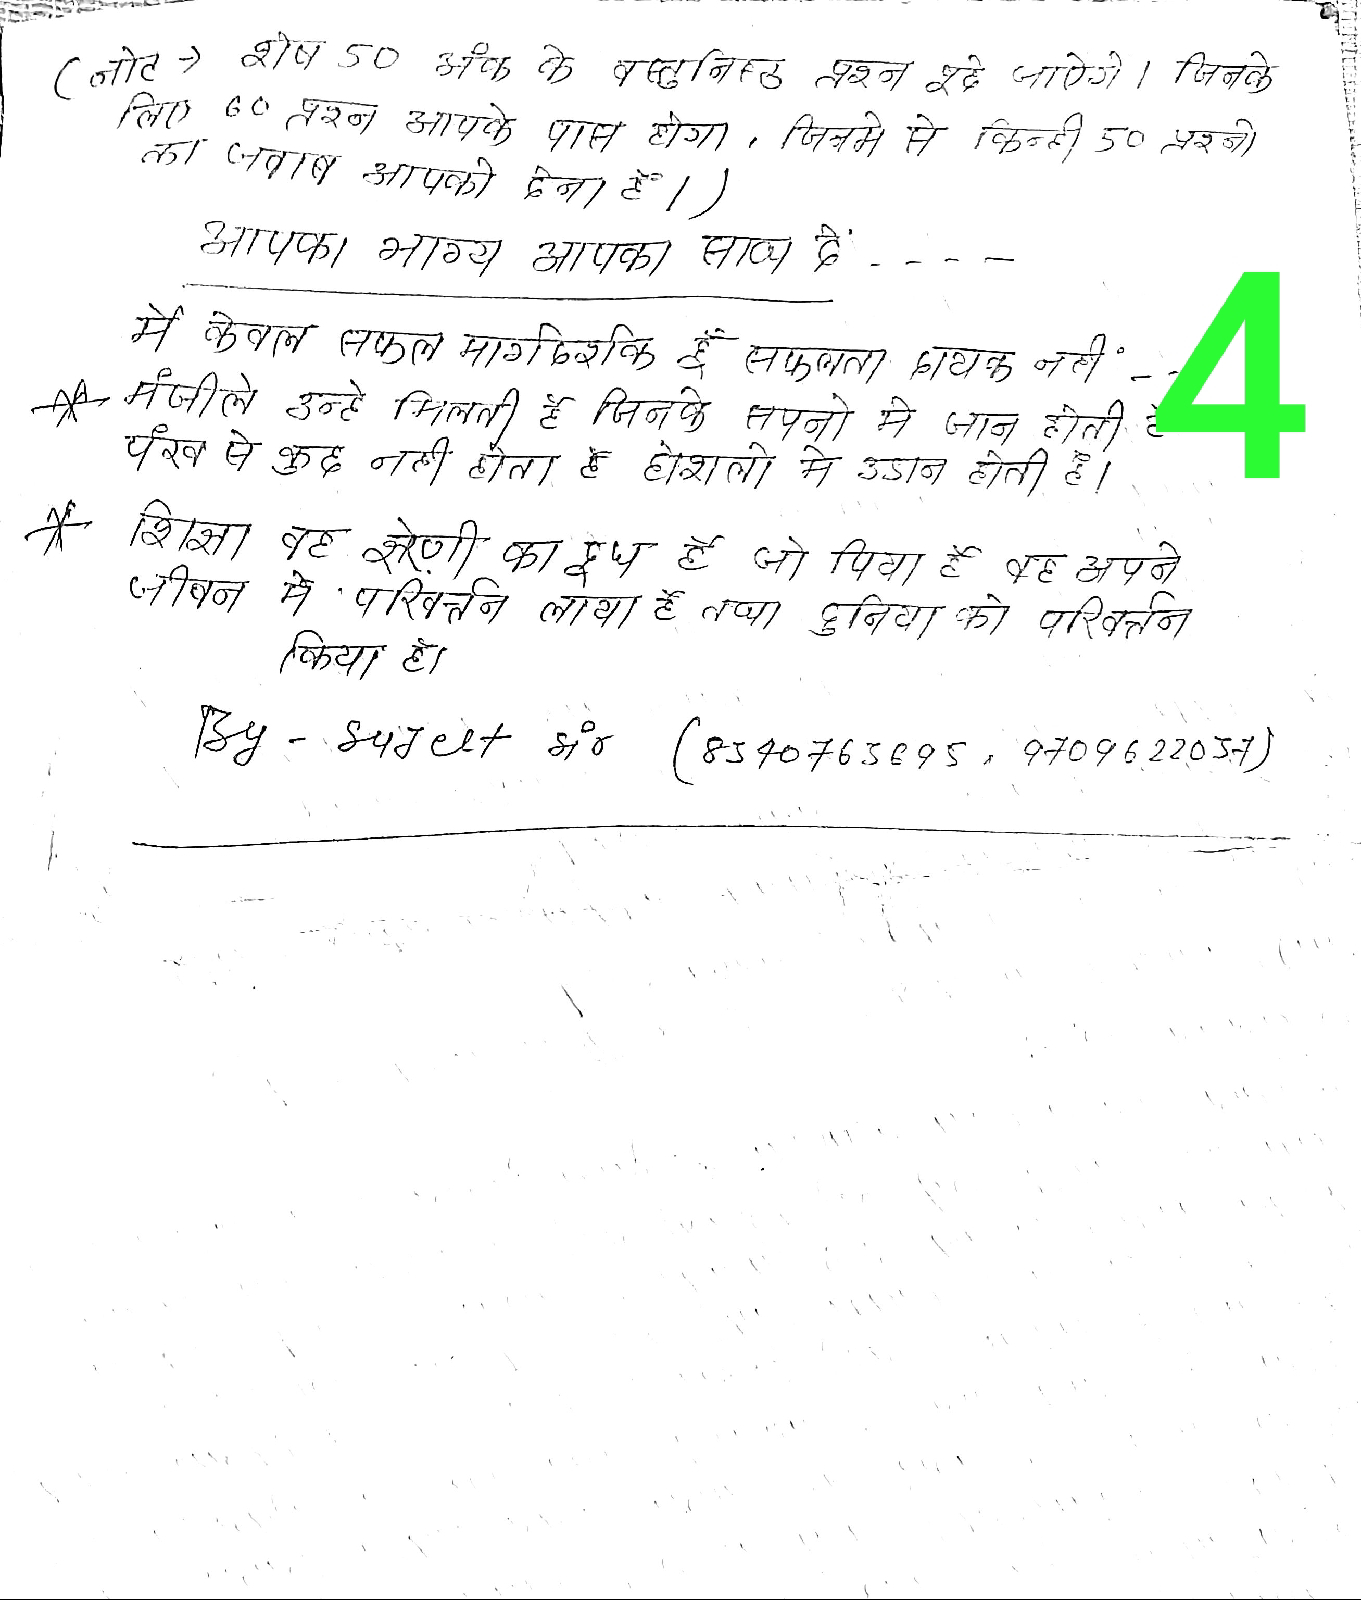 (नोट → शेष 50 अंक के वस्तुनिष्ठ प्रश्न पूछे जाऐगे। जिनके
लिए 60 प्रश्न आपके पास होगा, जिनमे से किन्ही 50 प्रश्नो
का जवाब आपको देना हैं।)
आपका भाग्य आपका साथ दें ----
में केवल सफल मार्गदर्शक हूँ सफलता दायक नहीं --
4
* मंजीले उन्हे मिलती हैं जिनके सपनो मे जान होती है
पंख से कुछ नही होता हैं होशलो मे उडान होती हैं।
* शिक्षा वह श्रेणी का दूध हैं जो पिया हैं वह अपने
जीवन मे परिवर्त्तन लाया हैं तथा दुनिया को परिवर्त्तन
किया है।
By - सर (, )